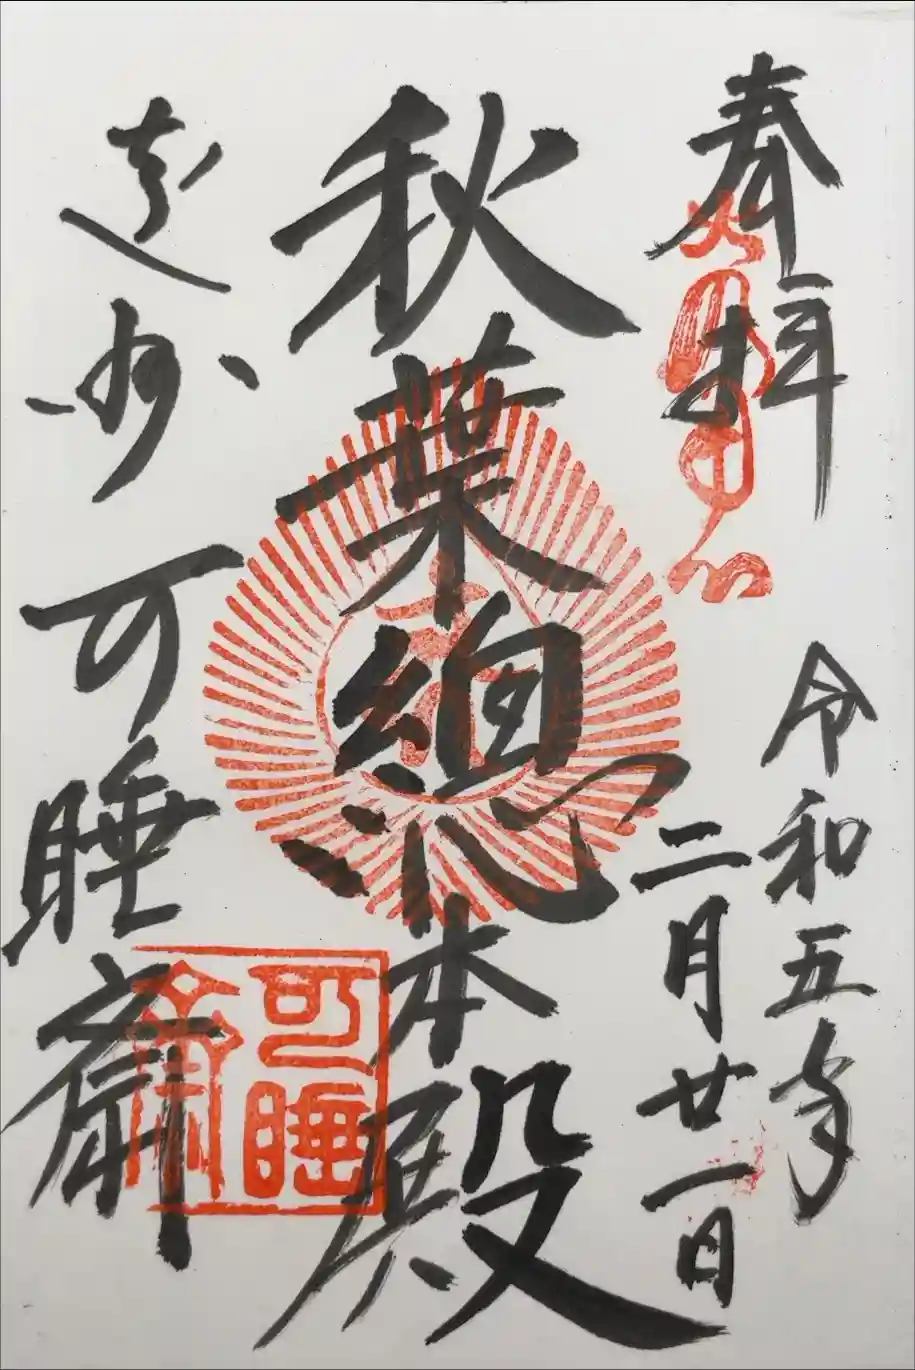 奉拝
令和五年
二月廿一日
秋葉總本殿
遠州
可睡斎
可睡
斎